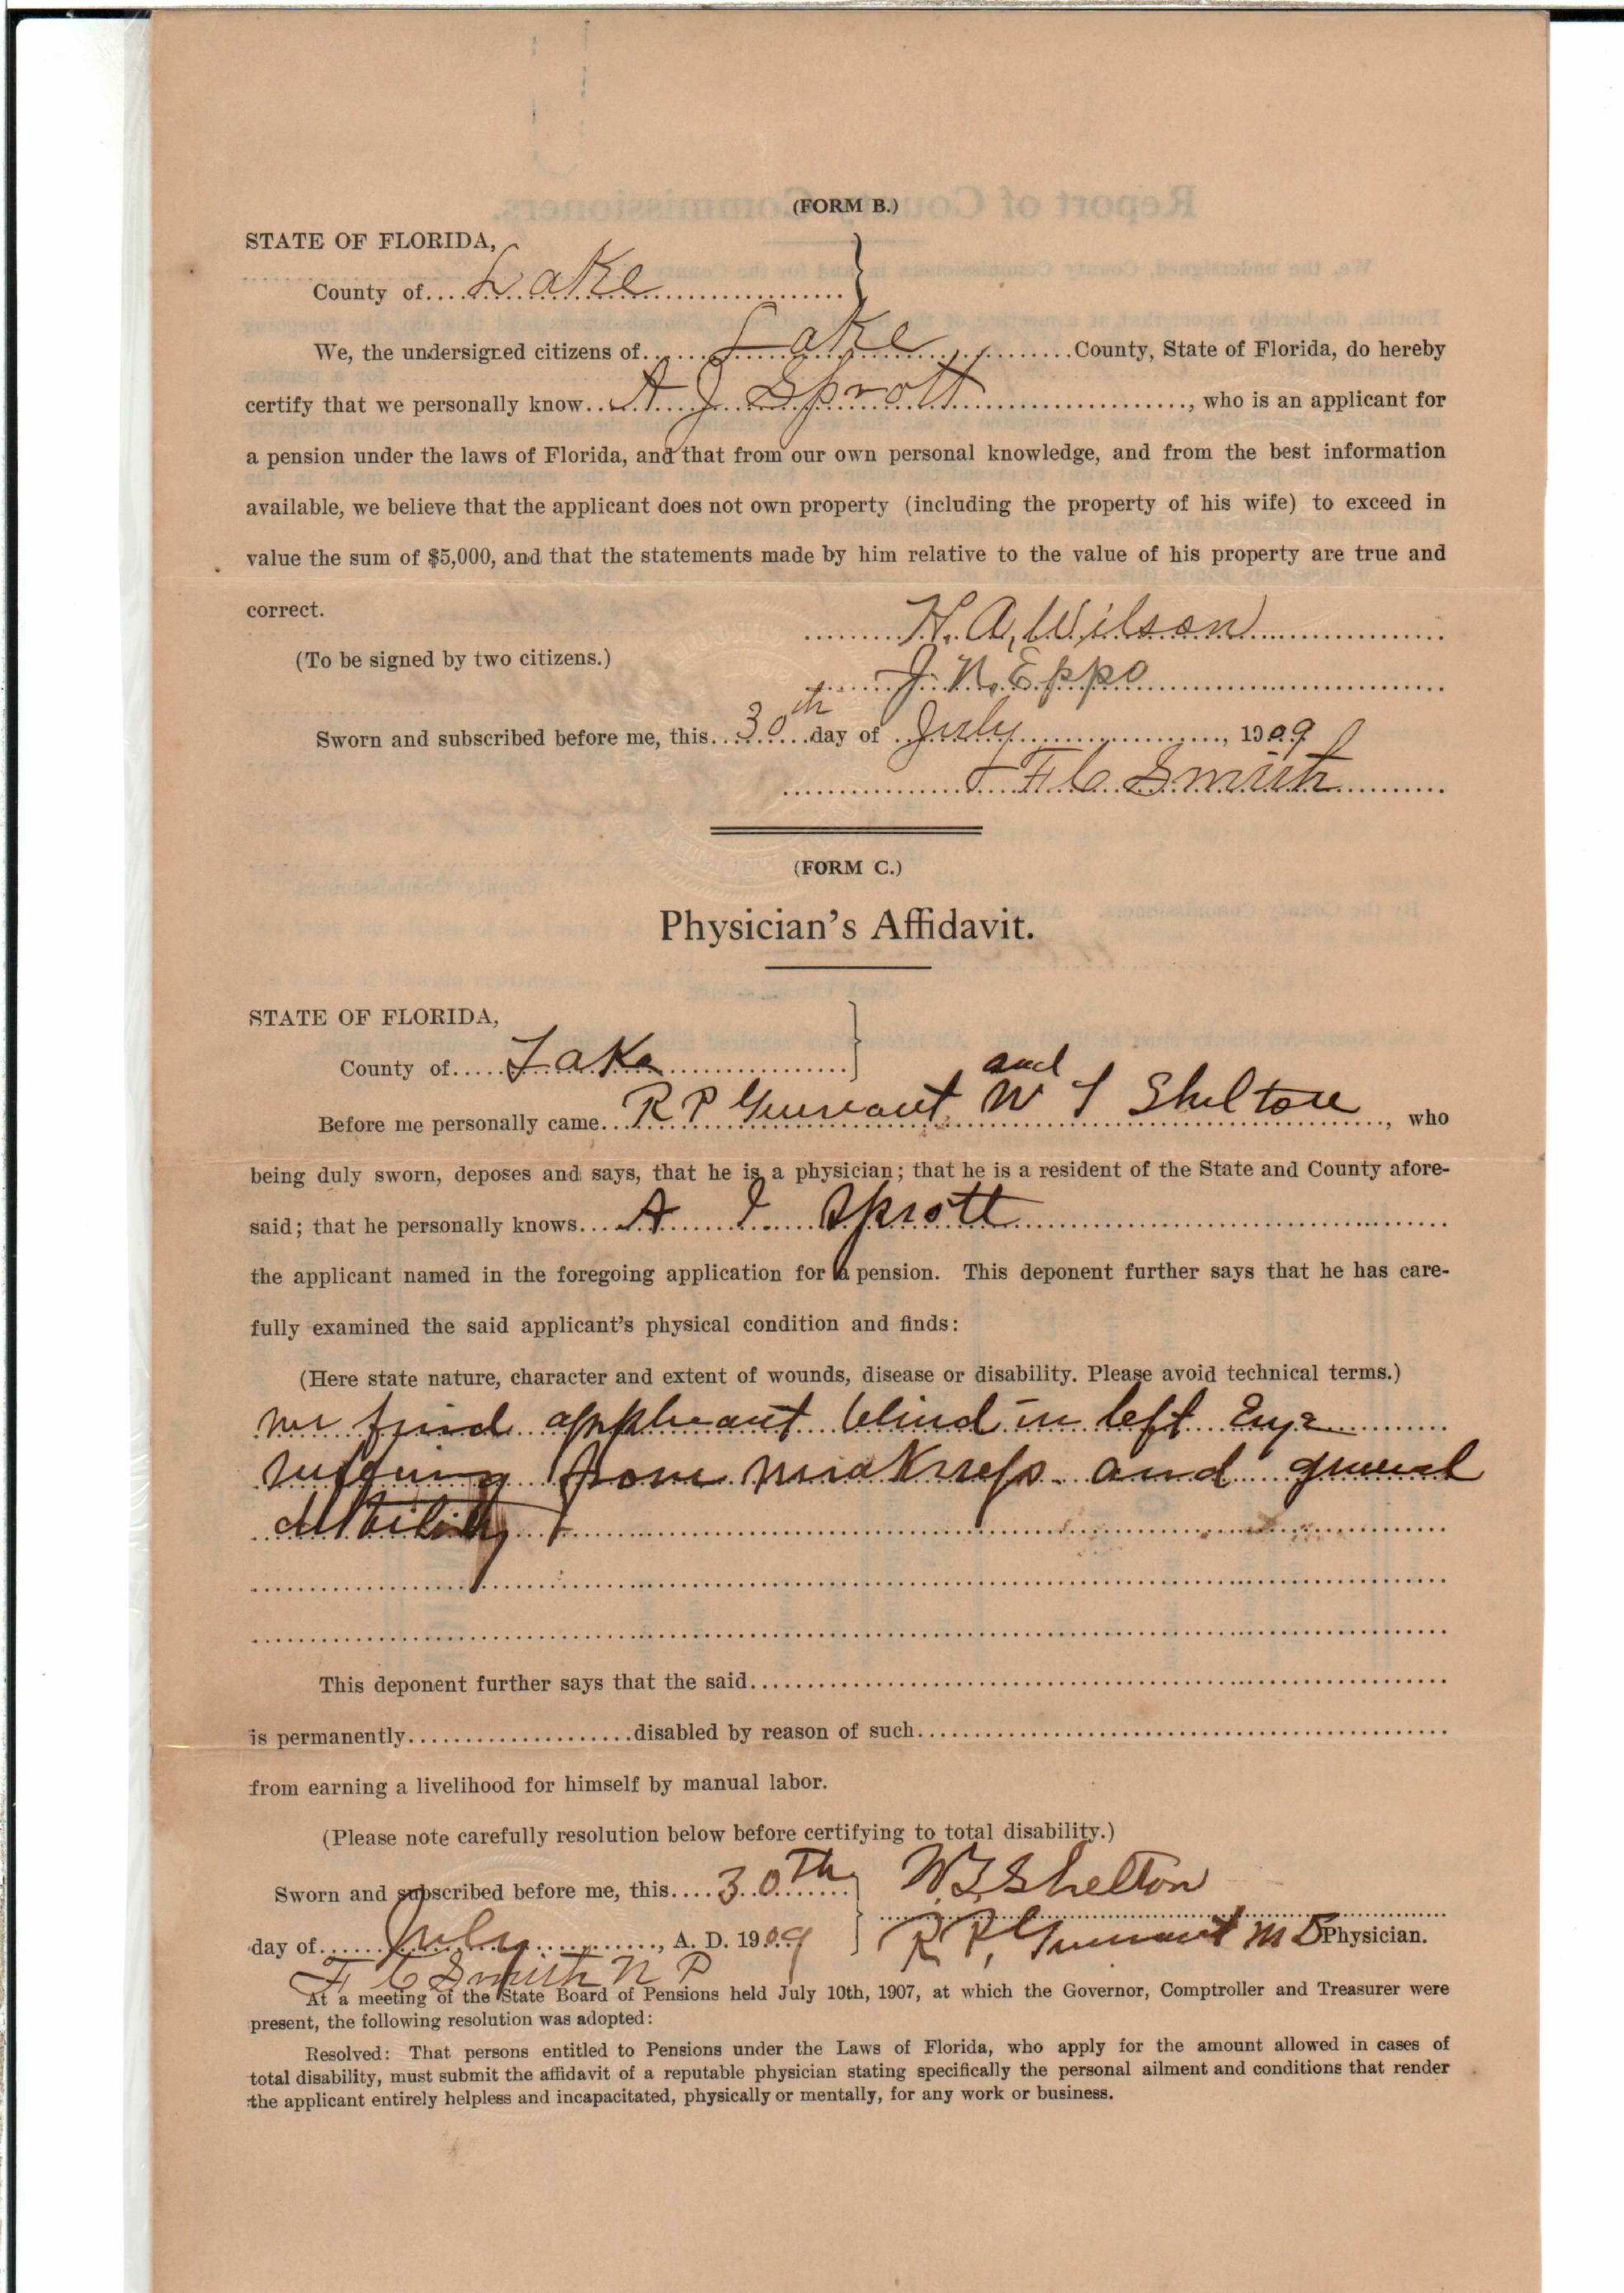 (FORM B.)
STATE OF FLORIDA,
County of....Lake
We, the undersigned citizens of......Lake......County, State of Florida, do hereby
certify that we personally know...A J Sprott......, who is an applicant for
a pension under the laws of Florida, and that from our own personal knowledge, and from the best information
available, we believe that the applicant does not own property (including the property of his wife) to exceed in
value the sum of $5,000, and that the statements made by him relative to the value of his property are true and
correct.
H. A. Wilson
(To be signed by two citizens.)
J. N. Epps
Sworn and subscribed before me, this...30th...day of July......, 1909
F C Smith
(FORM C.)
Physician's Affidavit.
STATE OF FLORIDA,
County of.....Lake
and
Before me personally came...R P Gunnant W T Shelton..., who
being duly sworn, deposes and says, that he is a physician; that he is a resident of the State and County afore-
said; that he personally knows....A J Sprott
the applicant named in the foregoing application for a pension. This deponent further says that he has care-
fully examined the said applicant's physical condition and finds:
(Here state nature, character and extent of wounds, disease or disability. Please avoid technical terms.)
we find applicant blind in left Eye
suffering from weakness and general
debility
This deponent further says that the said
is permanently....................disabled by reason of such
from earning a livelihood for himself by manual labor.
(Please note carefully resolution below before certifying to total disability.)
Sworn and subscribed before me, this....30th W. T. Shelton
day of......July......, A. D. 1909 R. P. Gunnant M D Physician.
F C Smith N P
At a meeting of the State Board of Pensions held July 10th, 1907, at which the Governor, Comptroller and Treasurer were
present, the following resolution was adopted:
Resolved: That persons entitled to Pensions under the Laws of Florida, who apply for the amount allowed in cases of
total disability, must submit the affidavit of a reputable physician stating specifically the personal ailment and conditions that render
the applicant entirely helpless and incapacitated, physically or mentally, for any work or business.